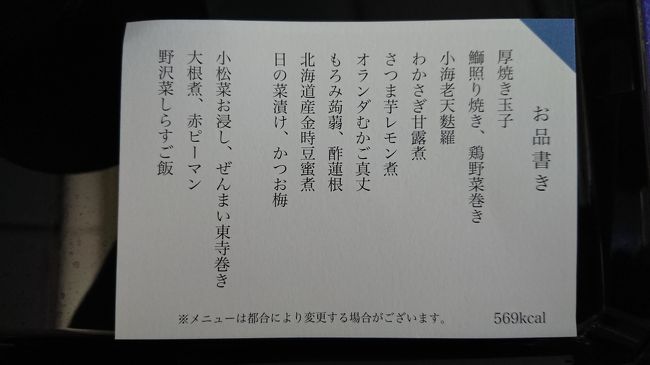 お品書き
厚焼き玉子
鰤照り焼き、鶏野菜巻き
小海老天麩羅
わかさぎ甘露煮
さつま芋レモン煮
オランダむかご真丈
もろみ蒟蒻、酢蓮根
北海道産金時豆蜜煮
日の菜漬け、かつお梅
小松菜お浸し、ぜんまい東寺巻き
大根煮、赤ピーマン
野沢菜しらすご飯
※メニューは都合により変更する場合がございます。
569kcal